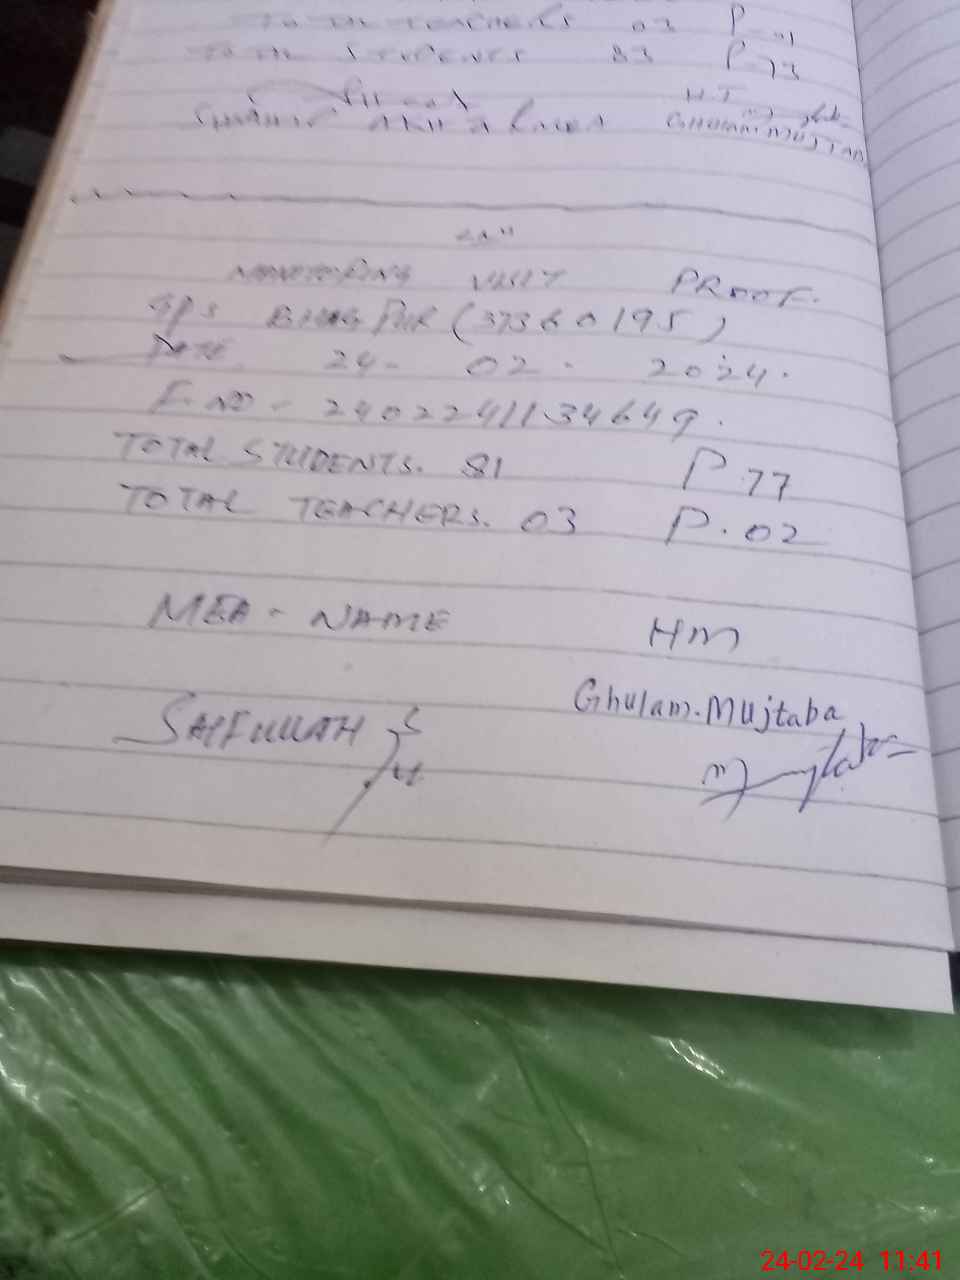 TOTAL TEACHERS 03 P-01
TOTAL STUDENTS 83 P-73
H.T
GHULAM MUJTABA
MONITORING VISIT PROOF.
GPS BHAG PUR (37360195)
DATE 24- 02 - 2024.
E. NO - 24022411134649.
TOTAL STUDENTS. 81 P.77
TOTAL TEACHERS. 03 P.02
MEA - NAME HM
SAIFULLAH Ghulam.Mujtaba
24-02-24 11:41